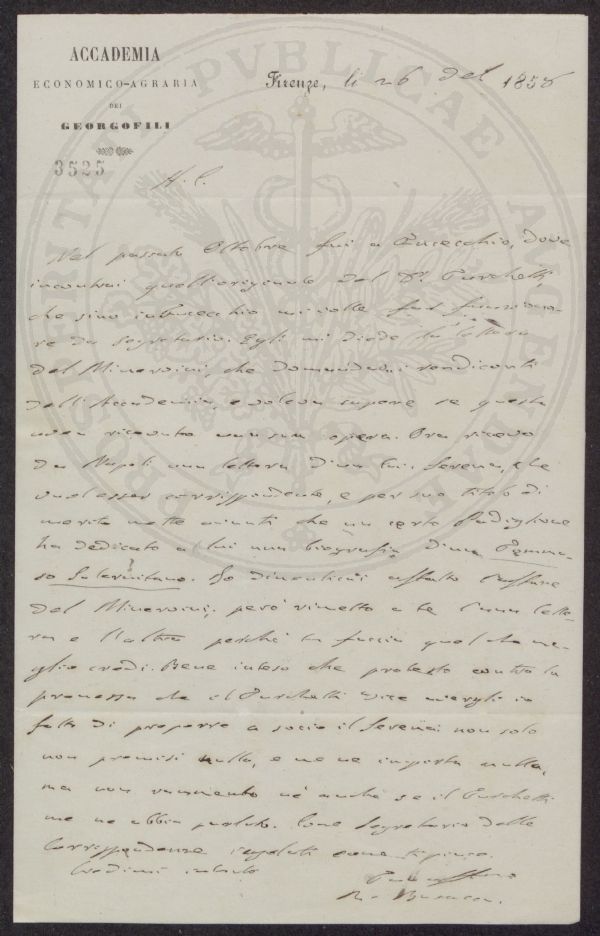 ACCADEMIA
ECONOMICO-AGRARIA
DEI
GEORGOFILI
3525
Firenze, li 26 del 1856
Nel passato Ottobre fui a Fucecchio, dove
incontrai quell'originale del Dr. Turchetti,
che sino in Fucecchio mi volle far funziona-
re da Segretario. Egli mi diede la lettera
del Minervini, che domandava i rendiconti
dell'Accademia, e voleva sapere se questa
aveva ricevuto una sua opera. Ora ricevo
da Napoli una lettera d'un tal Serena, che
vuol esser corrispondente, e per suo titolo di
merito mette avanti che un certo
ha dedicato a lui una biografia d'un Tomma-
so Salernitano. Io dimenticai affatto l'affare
del Minervini; però rimetto a te l'una lette-
ra e l'altra perché tu faccia quel che me-
glio credi. Bene inteso che protesto contro la
promessa che il Turchetti dice avergli io
fatto di proporre a socio il Serena: non solo
non promisi nulla, e me ne importa nulla,
ma non rammento né anche se il Turchetti
me ne abbia parlato. Come Segretario delle
Corrispondenze
Credimi intanto
R. Busacca.
PROSPERITATI PVBLICAE AVGENDAE